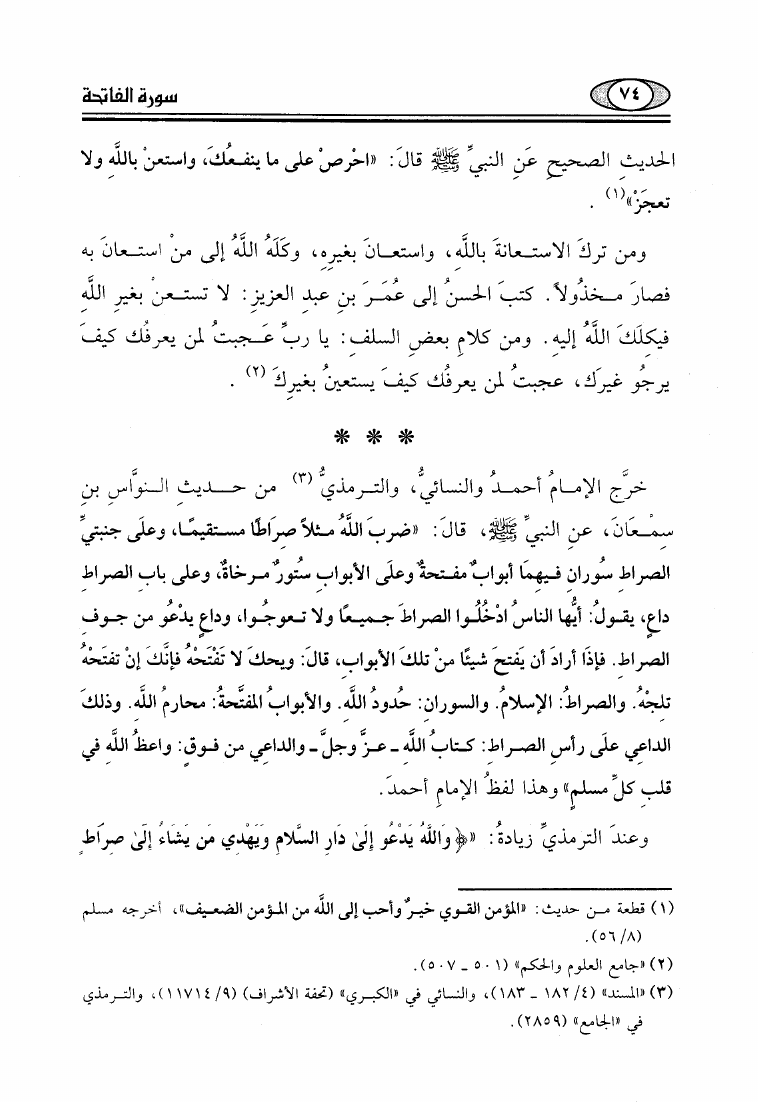 سورة الفاتحة
٧٤
الحديثِ الصحيحِ عَنِ النبيِّ ﷺ قالَ: «احْرِصْ على ما ينفعُكَ، واستعنْ باللَّهِ ولا
تعجَزْ»(١).
ومن تركَ الاستعانةَ باللَّهِ، واستعانَ بغيرِه، وكَلَهُ اللَّهُ إلى منْ استعانَ به
فصارَ مخذُولاً. كتبَ الحسنُ إلى عُمَرَ بنِ عبدِ العزيزِ: لا تستعنْ بغيرِ اللَّهِ
فيكلَكَ اللَّهُ إليهِ. ومن كلامِ بعضِ السلفِ: يا ربِّ عَجبتُ لمن يعرفُك كيفَ
يرجُو غيرَك، عجبتُ لمن يعرفُك كيفَ يستعينُ بغيرِكَ(٢).
* * *
خرَّج الإمامُ أحمدُ والنسائيُّ، والترمذيُّ(٣) من حديثِ النوَّاسِ بنِ
سمْعَانَ، عنِ النبيِّ ﷺ، قالَ: «ضربَ اللَّهُ مثلاً صراطًا مستقيمًا، وعلَى جنبتيِّ
الصراطِ سُورانِ فيهمَا أبوابٌ مفتحةٌ وعلَى الأبوابِ ستُورٌ مرخاةٌ، وعلى بابِ الصراطِ
داعٍ، يقولُ: أيُّها الناسُ ادْخُلُوا الصراطَ جميعًا ولا تعوجُوا، وداعٍ يدْعُو من جوفِ
الصراطِ. فإذَا أرادَ أن يَفتحَ شيئًا منْ تلكَ الأبوابِ، قالَ: ويحكَ لا تَفْتَحْهُ فإنَّكَ إنْ تفتَحْهُ
تلجْهُ. والصراطُ: الإسلامُ. والسورانِ: حُدودُ اللَّهِ. والأبوابُ المفتَّحةُ: محارمُ اللَّهِ. وذلكَ
الداعي علَى رأسِ الصراطِ: كتابُ اللَّهِ ـ عزَّ وجلَّ ـ والداعِي من فوقِ: واعظُ اللَّهِ في
قلبِ كلِّ مسلمٍ» وهذا لفظُ الإمامِ أحمدَ.
وعندَ الترمذيِّ زيادةُ: «﴿وَاللَّهُ يَدْعُو إِلَىٰ دَارِ السَّلامِ وَيَهْدِي مَن يَشَاءُ إِلَىٰ صِرَاطٍ
(١) قطعة من حديث: «المؤمن القوي خيرٌ وأحب إلى اللَّه من المؤمن الضعيف»، أخرجه مسلم
(٨/ ٥٦).
(٢) «جامع العلوم والحكم» (٥٠١ ـ ٥٠٧).
(٣) «المسند» (٤/ ١٨٢ ـ ١٨٣)، والنسائي في «الكبرى» (تحفة الأشراف) (٩/ ١١٧١٤)، والترمذي
في «الجامع» (٢٨٥٩).